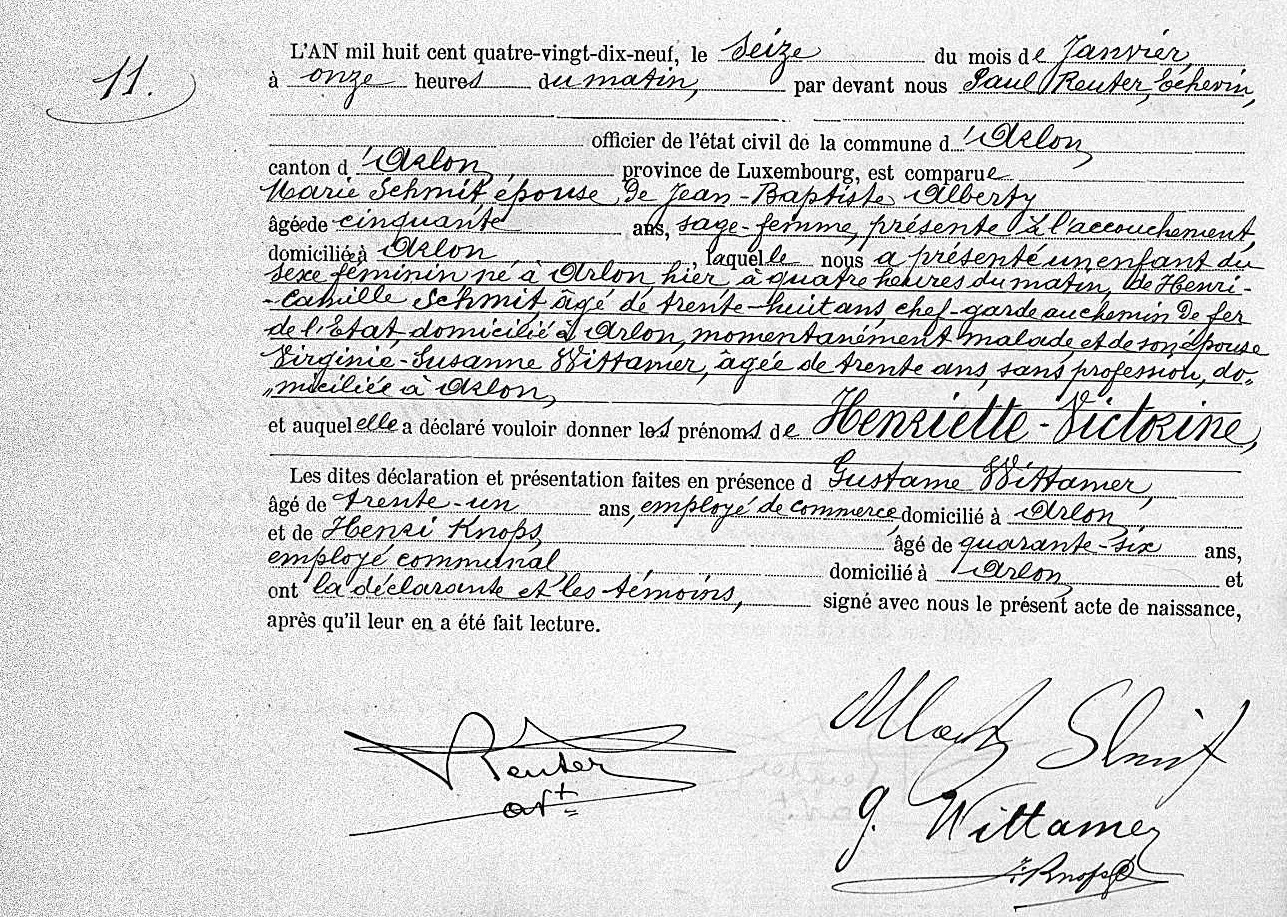 L'AN mil huit cent quatre-vingt-dix-neuf, le seize du mois de Janvier,
11.
à onze heures du matin, par devant nous Paul Reuter, Echevin,
officier de l'état civil de la commune d'Arlon,
canton d'Arlon, province de Luxembourg, est comparue
Marie Schmit, épouse de Jean-Baptiste Alberty
âgée de cinquante ans, sage-femme, présente à l'accouchement,
domiciliée à Arlon, laquelle nous a présenté un enfant du
sexe féminin né à Arlon, hier à quatre heures du matin, de Henri-
-Camille Schmit, âgé de trente-huit ans, chef-garde au chemin de fer
de l'Etat, domicilié à Arlon, momentanément malade, et de son épouse
Virginie-Susanne Wittamer, âgée de trente ans, sans profession, do-
„miciliée à Arlon,
et auquel elle a déclaré vouloir donner les prénoms de Henriette-Victorine,
Les dites déclaration et présentation faites en présence d Gustame Wittamer,
âgé de trente-un ans, employé de commerce, domicilié à Arlon,
et de Henri Knops, âgé de quarante-six ans,
employé communal domicilié à Arlon, et
ont la déclarante et les témoins, signé avec nous le présent acte de naissance,
après qu'il leur en a été fait lecture.
Reuter
Schmit
g. Wittamer
Knops